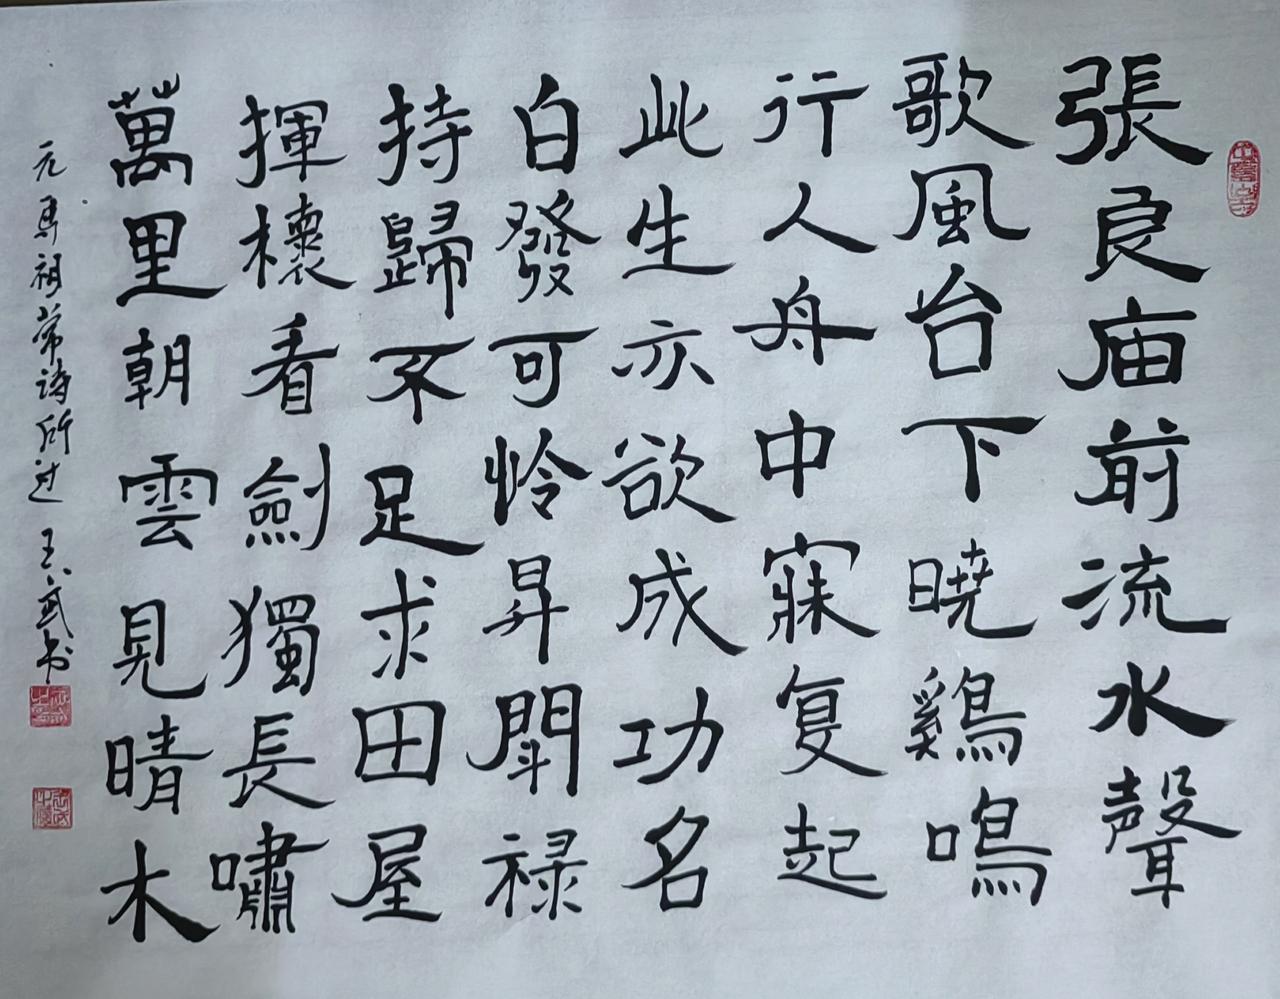 張良庙前流水聲
歌風台下曉鷄鳴
行人舟中寐复起
此生亦欲成功名
白發可怜昇鬭禄
持歸不足求田屋
揮櫰看劍獨長嘯
萬里朝雲見晴木
元馬祖常诗所过 王武书